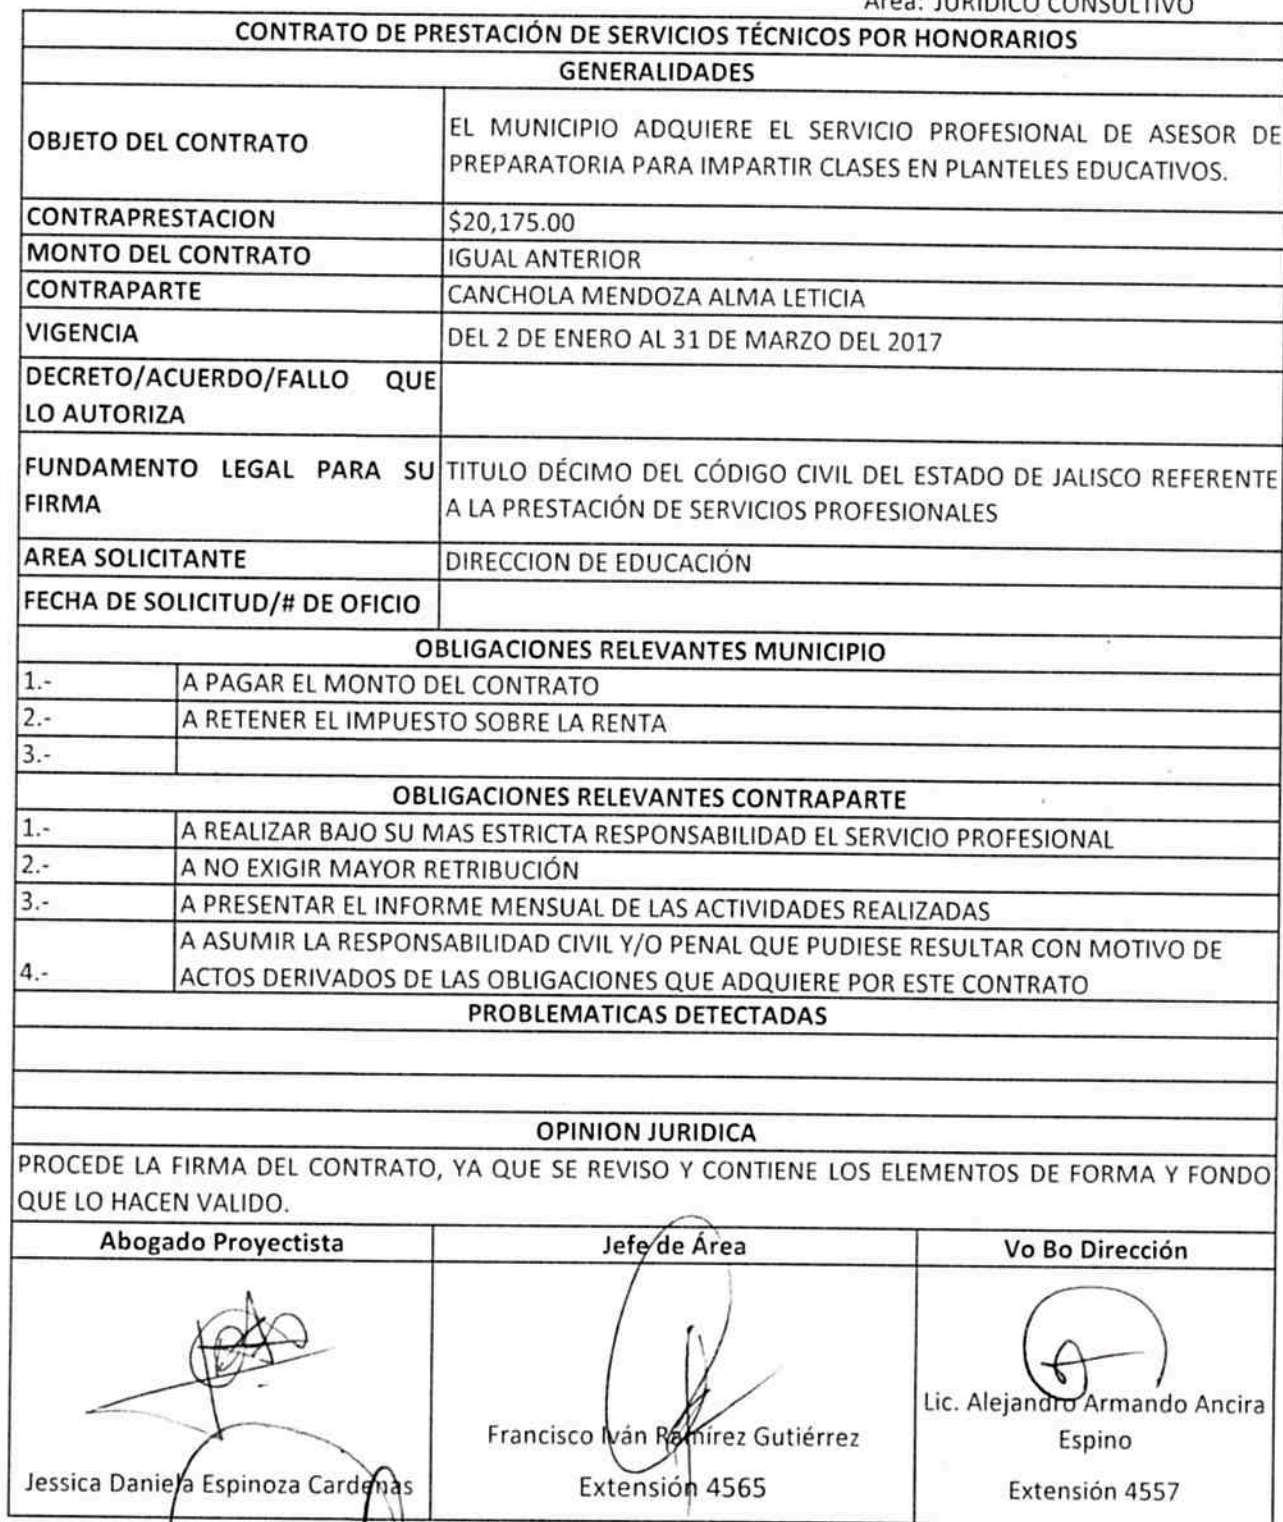 Área: JURIDICO CONSULTIVO
CONTRATO DE PRESTACIÓN DE SERVICIOS TÉCNICOS POR HONORARIOS
GENERALIDADES
OBJETO DEL CONTRATO
EL MUNICIPIO ADQUIERE EL SERVICIO PROFESIONAL DE ASESOR DE
PREPARATORIA PARA IMPARTIR CLASES EN PLANTELES EDUCATIVOS.
CONTRAPRESTACION $20,175.00
MONTO DEL CONTRATO IGUAL ANTERIOR
CONTRAPARTE CANCHOLA MENDOZA ALMA LETICIA
VIGENCIA DEL 2 DE ENERO AL 31 DE MARZO DEL 2017
DECRETO/ACUERDO/FALLO QUE
LO AUTORIZA
FUNDAMENTO LEGAL PARA SU
FIRMA
TITULO DÉCIMO DEL CÓDIGO CIVIL DEL ESTADO DE JALISCO REFERENTE
A LA PRESTACIÓN DE SERVICIOS PROFESIONALES
AREA SOLICITANTE DIRECCION DE EDUCACIÓN
FECHA DE SOLICITUD/# DE OFICIO
OBLIGACIONES RELEVANTES MUNICIPIO
1.- A PAGAR EL MONTO DEL CONTRATO
2.- A RETENER EL IMPUESTO SOBRE LA RENTA
3.-
OBLIGACIONES RELEVANTES CONTRAPARTE
1.- A REALIZAR BAJO SU MAS ESTRICTA RESPONSABILIDAD EL SERVICIO PROFESIONAL
2.- A NO EXIGIR MAYOR RETRIBUCIÓN
3.- A PRESENTAR EL INFORME MENSUAL DE LAS ACTIVIDADES REALIZADAS
A ASUMIR LA RESPONSABILIDAD CIVIL Y/O PENAL QUE PUDIESE RESULTAR CON MOTIVO DE
4.- ACTOS DERIVADOS DE LAS OBLIGACIONES QUE ADQUIERE POR ESTE CONTRATO
PROBLEMATICAS DETECTADAS
OPINION JURIDICA
PROCEDE LA FIRMA DEL CONTRATO, YA QUE SE REVISO Y CONTIENE LOS ELEMENTOS DE FORMA Y FONDO
QUE LO HACEN VALIDO.
Abogado Proyectista
Jefe de Área
Vo Bo Dirección
Jessica Daniela Espinoza Cardenas
Francisco Iván Ramírez Gutiérrez
Extensión 4565
Lic. Alejandro Armando Ancira
Espino
Extensión 4557